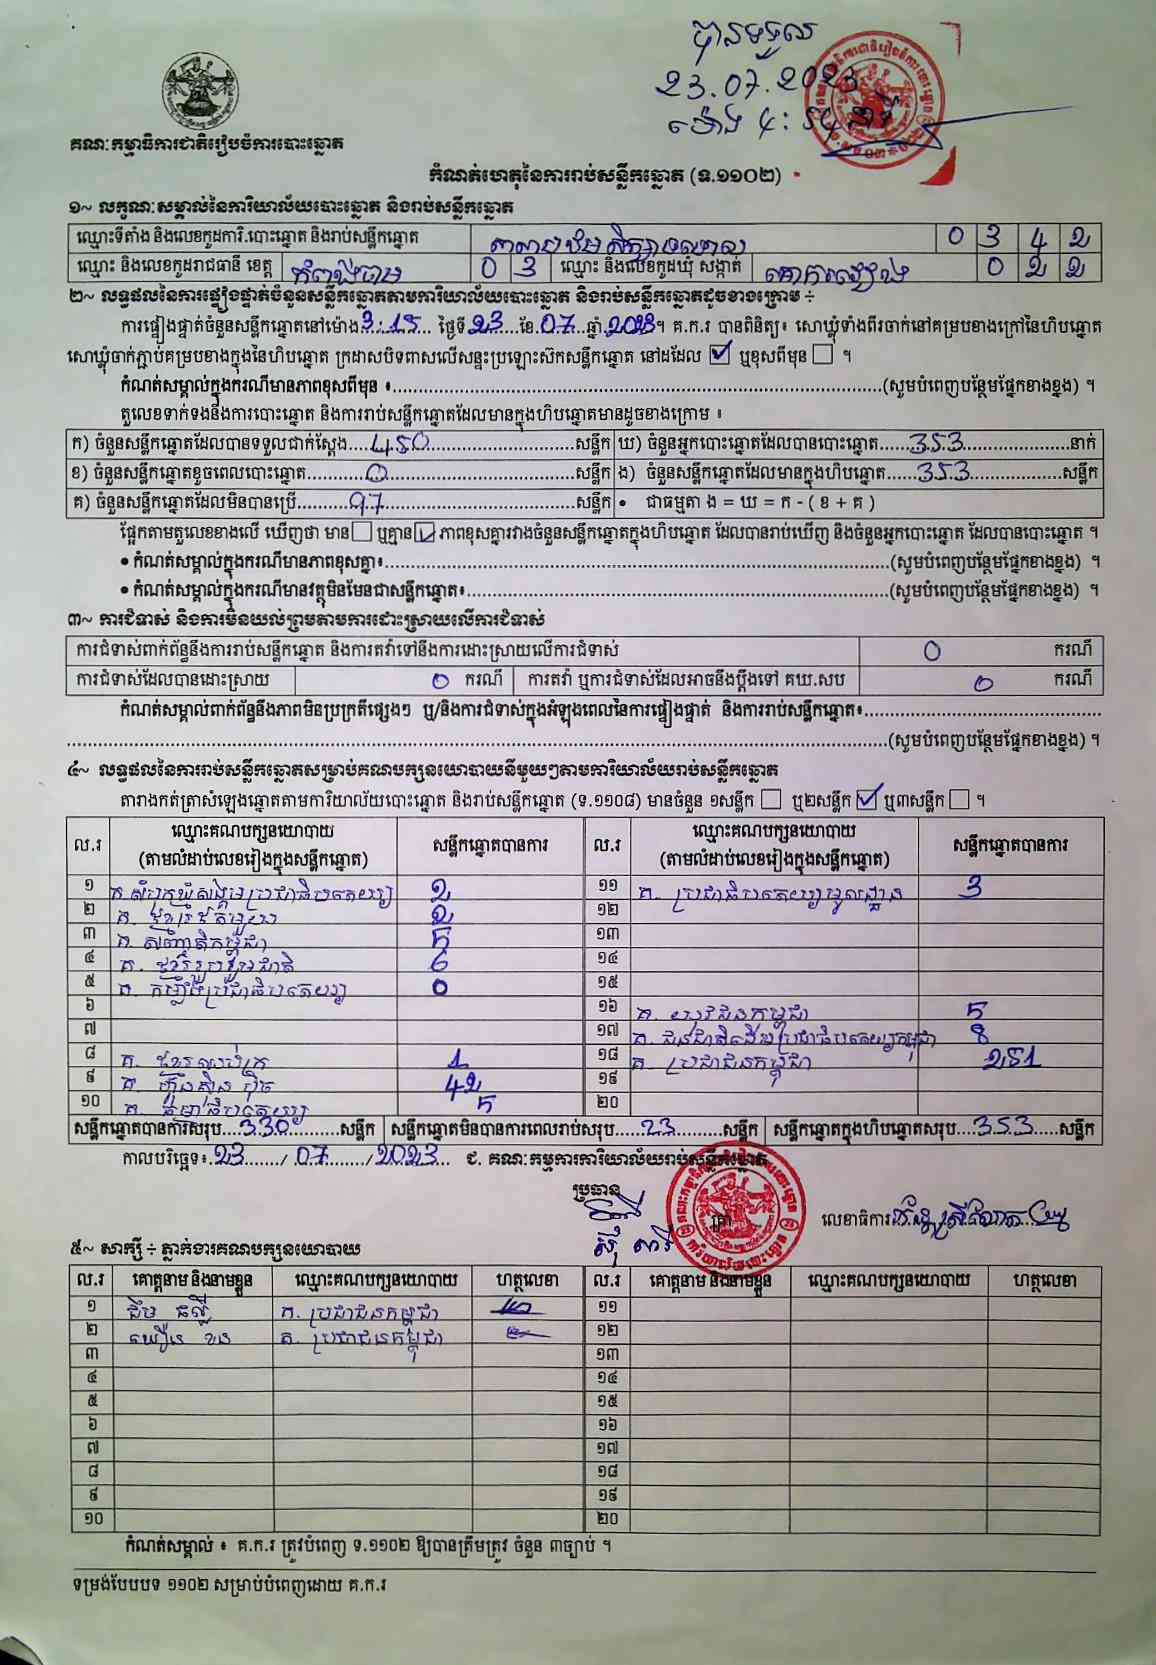 បានទទួល
23.07.2023
ម៉ោង 4:54 នាទី
គណៈកម្មាធិការជាតិរៀបចំការបោះឆ្នោត
កំណត់ហេតុនៃការរាប់សន្លឹកឆ្នោត (ទ.១១០២)
១~ លក្ខណៈសម្គាល់នៃការិយាល័យបោះឆ្នោត និងរាប់សន្លឹកឆ្នោត
ឈ្មោះទីតាំង និងលេខកូដការិ.បោះឆ្នោត និងរាប់សន្លឹកឆ្នោត 0 3 4 2
ឈ្មោះ និងលេខកូដរាជធានី ខេត្ត កំពង់ចាម 0 3 ឈ្មោះ និងលេខកូដឃុំ សង្កាត់ គោករវៀង 0 2 2
២~ លទ្ធផលនៃការផ្ទៀងផ្ទាត់ចំនួនសន្លឹកឆ្នោតតាមការិយាល័យបោះឆ្នោត និងរាប់សន្លឹកឆ្នោតដូចខាងក្រោម ÷
ការផ្ទៀងផ្ទាត់ចំនួនសន្លឹកឆ្នោតនៅម៉ោង 3:15 ថ្ងៃទី 23 ខែ 07 ឆ្នាំ 2023 ។ គ.ក.រ បានពិនិត្យ៖ សោឃ្លុំទាំងពីរចាក់នៅគម្របខាងក្រៅនៃហិបឆ្នោត
សោឃ្លុំចាក់ភ្ជាប់គម្របខាងក្នុងនៃហិបឆ្នោត ក្រដាសបិទពាសលើសន្ទះប្រឡោះស៊កសន្លឹកឆ្នោត នៅដដែល ☑ ឬខុសពីមុន ☐ ។
កំណត់សម្គាល់ក្នុងករណីមានភាពខុសពីមុន ៖ (សូមបំពេញបន្ថែមផ្នែកខាងខ្នង) ។
តួលេខទាក់ទងនឹងការបោះឆ្នោត និងការរាប់សន្លឹកឆ្នោតដែលមានក្នុងហិបឆ្នោតមានដូចខាងក្រោម ៖
ក) ចំនួនសន្លឹកឆ្នោតដែលបានទទួលជាក់ស្តែង 450 សន្លឹក ឃ) ចំនួនអ្នកបោះឆ្នោតដែលបានបោះឆ្នោត 353 នាក់
ខ) ចំនួនសន្លឹកឆ្នោតខូចពេលបោះឆ្នោត 0 សន្លឹក ង) ចំនួនសន្លឹកឆ្នោតដែលមានក្នុងហិបឆ្នោត 353 សន្លឹក
គ) ចំនួនសន្លឹកឆ្នោតដែលមិនបានប្រើ 97 សន្លឹក • ជាធម្មតា ង = ឃ = ក - ( ខ + គ )
ផ្អែកតាមតួលេខខាងលើ ឃើញថា មាន ☐ ឬគ្មាន ☑ ភាពខុសគ្នារវាងចំនួនសន្លឹកឆ្នោតក្នុងហិបឆ្នោត ដែលបានរាប់ឃើញ និងចំនួនអ្នកបោះឆ្នោត ដែលបានបោះឆ្នោត ។
• កំណត់សម្គាល់ក្នុងករណីមានភាពខុសគ្នា៖ (សូមបំពេញបន្ថែមផ្នែកខាងខ្នង) ។
• កំណត់សម្គាល់ក្នុងករណីមានវត្ថុមិនមែនជាសន្លឹកឆ្នោត៖ (សូមបំពេញបន្ថែមផ្នែកខាងខ្នង) ។
៣~ ការជំទាស់ និងការមិនយល់ព្រមតាមការដោះស្រាយលើការជំទាស់
ការជំទាស់ពាក់ព័ន្ធនឹងការរាប់សន្លឹកឆ្នោត និងការតវ៉ាទៅនឹងការដោះស្រាយលើការជំទាស់ 0 ករណី
ការជំទាស់ដែលបានដោះស្រាយ 0 ករណី ការតវ៉ា ឬការជំទាស់ដែលអាចនឹងប្តឹងទៅ គឃ.សប 0 ករណី
កំណត់សម្គាល់ពាក់ព័ន្ធនឹងភាពមិនប្រក្រតីផ្សេងៗ ឬ/និងការជំទាស់ក្នុងអំឡុងពេលនៃការផ្ទៀងផ្ទាត់ និងការរាប់សន្លឹកឆ្នោត៖
(សូមបំពេញបន្ថែមផ្នែកខាងខ្នង) ។
៤~ លទ្ធផលនៃការរាប់សន្លឹកឆ្នោតសម្រាប់គណបក្សនយោបាយនីមួយៗតាមការិយាល័យរាប់សន្លឹកឆ្នោត
តារាងកត់ត្រាសំឡេងឆ្នោតតាមការិយាល័យបោះឆ្នោត និងរាប់សន្លឹកឆ្នោត (ទ.១១០៨) មានចំនួន ១សន្លឹក ☐ ឬ២សន្លឹក ☑ ឬ៣សន្លឹក ☐ ។
ល.រ ឈ្មោះគណបក្សនយោបាយ (តាមលំដាប់លេខរៀងក្នុងសន្លឹកឆ្នោត) សន្លឹកឆ្នោតបានការ ល.រ ឈ្មោះគណបក្សនយោបាយ (តាមលំដាប់លេខរៀងក្នុងសន្លឹកឆ្នោត) សន្លឹកឆ្នោតបានការ
១ គ.សំបុកឃ្មុំសង្គមប្រជាធិបតេយ្យ 2 ១១ គ. ប្រជាធិបតេយ្យមូលដ្ឋាន 3
២ គ. ខ្មែរតែមួយ 2 ១២
៣ គ. សញ្ជាតិកម្ពុជា 5 ១៣
៤ គ. ខ្មែររួបរួមជាតិ 6 ១៤
៥ គ. កម្លាំងប្រជាធិបតេយ្យ 0 ១៥
៦ ១៦ គ. យុវជនកម្ពុជា 5
៧ ១៧ គ. ជនជាតិដើមប្រជាធិបតេយ្យកម្ពុជា 8
៨ គ. ខ្មែរឈប់ក្រ 1 ១៨ គ. ប្រជាជនកម្ពុជា 251
៩ គ. ហ្វ៊ុនស៊ិនប៉ិច 42 ១៩
១០ គ. ធម្មាធិបតេយ្យ 5 ២០
សន្លឹកឆ្នោតបានការសរុប 330 សន្លឹក សន្លឹកឆ្នោតមិនបានការពេលរាប់សរុប 23 សន្លឹក សន្លឹកឆ្នោតក្នុងហិបឆ្នោតសរុប 353 សន្លឹក
កាលបរិច្ឆេទ៖ 23 / 07 / 2023 ជ. គណៈកម្មការការិយាល័យរាប់សន្លឹកឆ្នោត
ប្រធាន
លេខាធិការ
៥~ សាក្សី ÷ ភ្នាក់ងារគណបក្សនយោបាយ
ល.រ គោត្តនាម និងនាមខ្លួន ឈ្មោះគណបក្សនយោបាយ ហត្ថលេខា ល.រ គោត្តនាម និងនាមខ្លួន ឈ្មោះគណបក្សនយោបាយ ហត្ថលេខា
១ គ. ប្រជាជនកម្ពុជា ១១
២ គ. ប្រជាជនកម្ពុជា ១២
៣ ១៣
៤ ១៤
៥ ១៥
៦ ១៦
៧ ១៧
៨ ១៨
៩ ១៩
១០ ២០
កំណត់សម្គាល់ ៖ គ.ក.រ ត្រូវបំពេញ ទ.១១០២ ឱ្យបានត្រឹមត្រូវ ចំនួន ៣ច្បាប់ ។
ទម្រង់បែបបទ ១១០២ សម្រាប់បំពេញដោយ គ.ក.រ